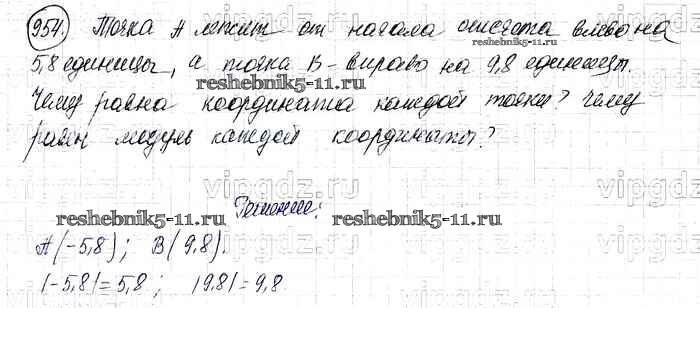 954. Точка А лежит от начала отсчета влево на
5,8 единицы, а точка В - вправо на 9,8 единицы.
reshebnik5-11.ru
Чему равна координата каждой точки? Чему
равен модуль каждой координаты?
vipgdz.ru vipgdz.ru vipgdz.ru
Решение:
reshebnik5-11.ru reshebnik5-11.ru
А(-5,8); В(9,8).
|-5,8|=5,8; |9,8|=9,8.